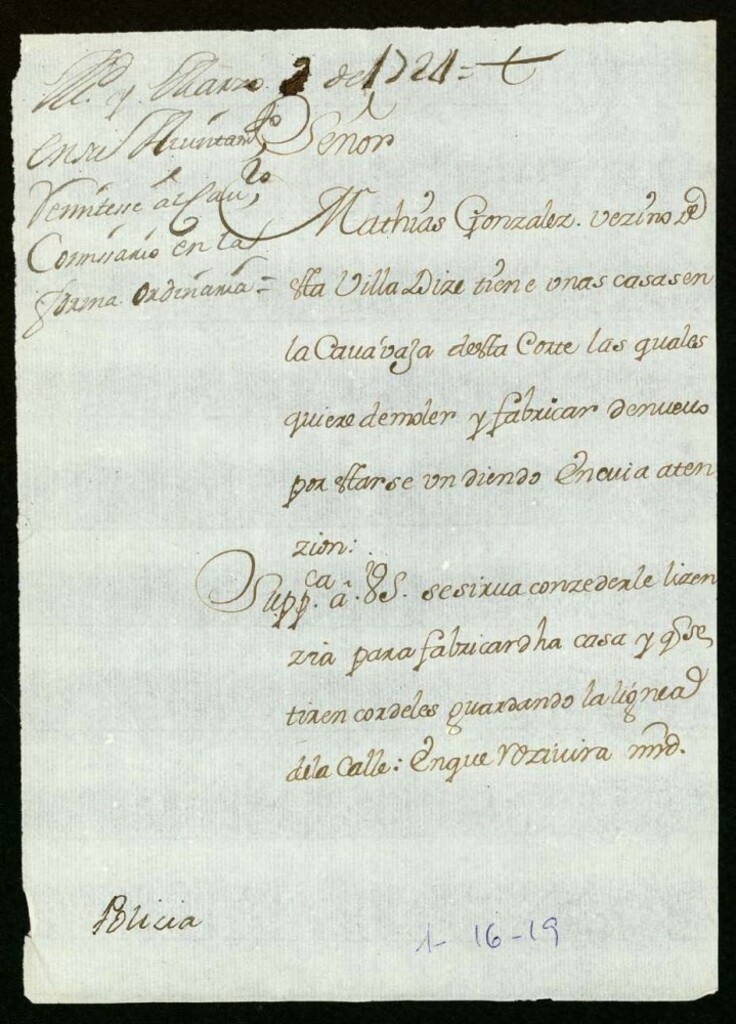 Md. y Marzo 2 de 1721 = +
en su Aiuntamto
Remitese al Cauro
Comisario en la
forma ordinaria =
Señor
Mathias Gonzalez. vezino de
sta Villa Dize tiene unas casas en
la Caua vaja desta Corte las quales
quiere demoler y fabricar denuevo
por starse undiendo En cuia aten
zion:
Suppca. a. VS. sesirua conzederle lizen
zia para fabricar dha casa y q se
tiren cordeles guardando la lignea
dela Calle: En que Rezivira mrd.
Policia
1-16-19